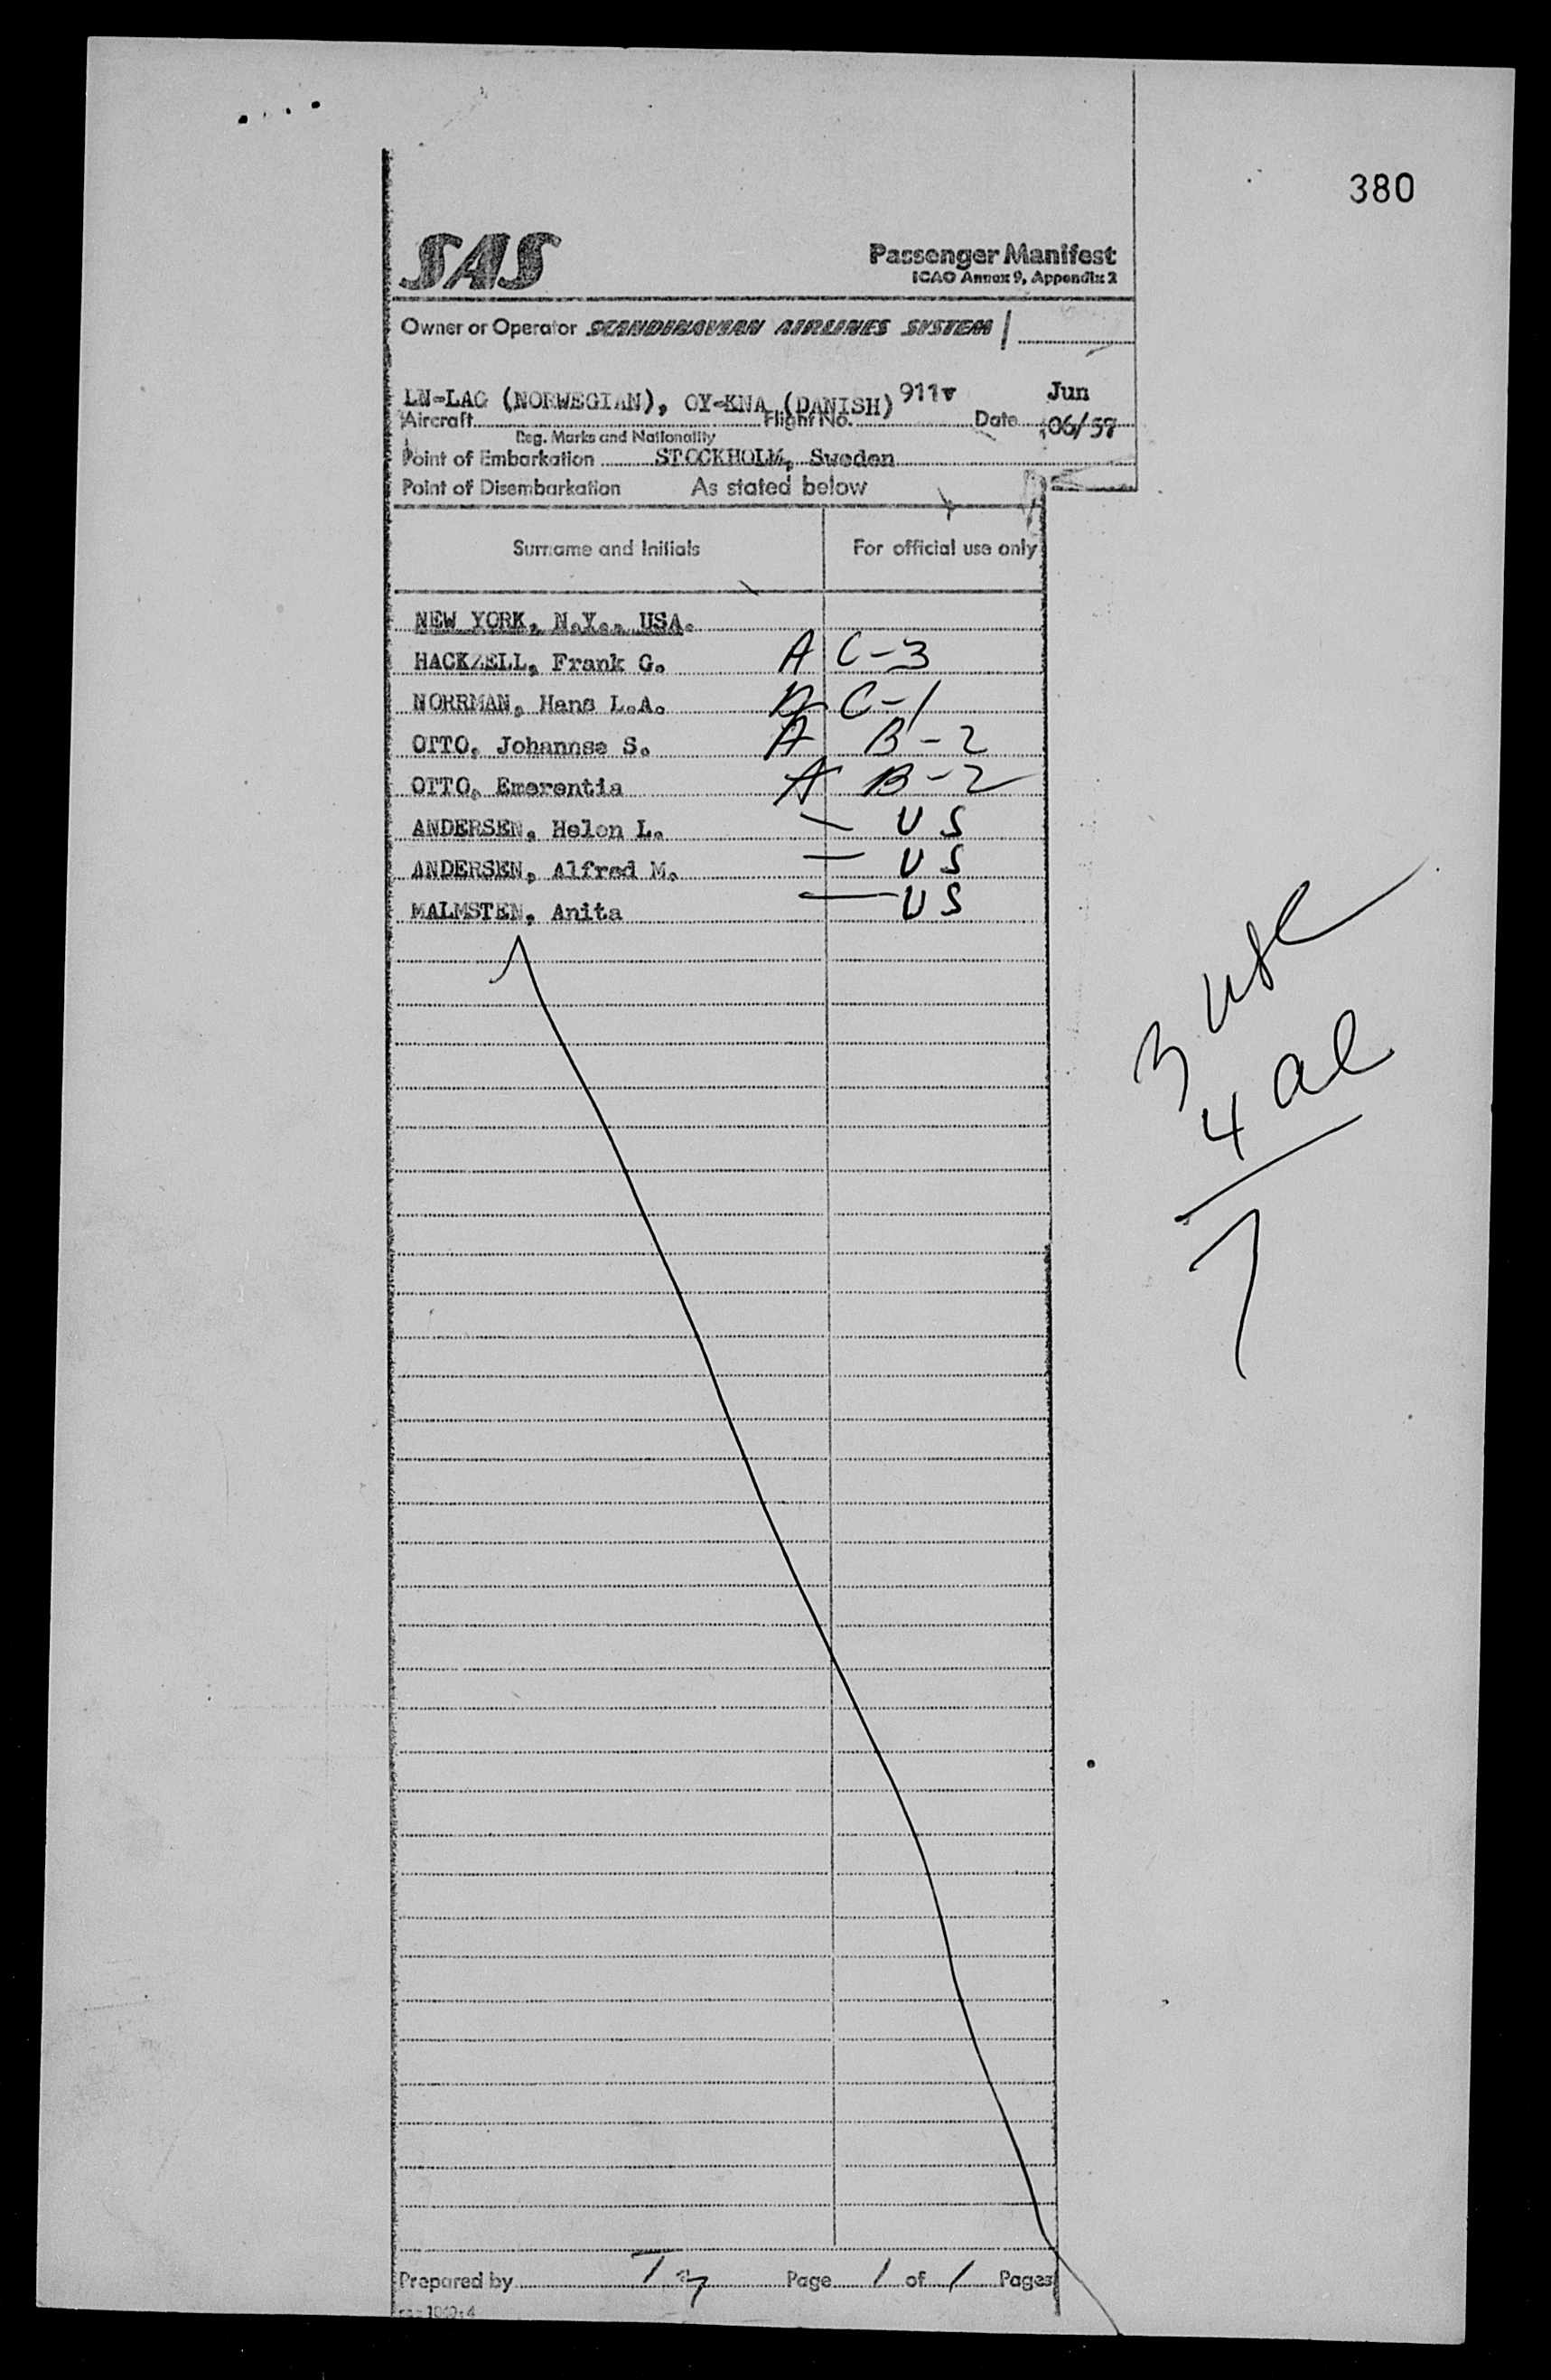 380
SAS
Passenger Manifest
ICAO Annex 9, Appendix 2
Owner or Operator SCANDINAVIAN AIRLINES SYSTEM
LN-LAG (NORWEGIAN), OY-KNA (DANISH) 911v Jun
Aircraft Flight No. Date 06/57
Reg. Marks and Nationality
Point of Embarkation STOCKHOLM, Sweden
Point of Disembarkation As stated below
Surname and Initials For official use only
NEW YORK, N.Y., USA.
HACKZELL, Frank G. A C-3
NORRMAN, Hans L.A. C-1
OTTO, Johannse S. A B-2
OTTO, Emerentia A B-2
ANDERSEN, Helen L. — US
ANDERSEN, Alfred M. — US
MALMSTEN, Anita — US
3 usc
4 al
7
Prepared by Page 1 of 1 Pages